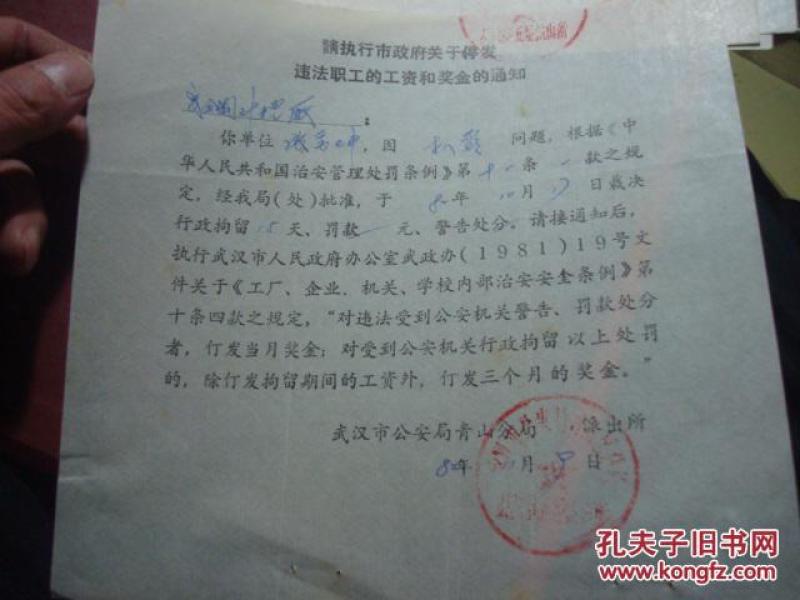 请执行市政府关于停发
违法职工的工资和奖金的通知
：
你单位 ，因 问题，根据《中
华人民共和国治安管理处罚条例》第十一条一款之规
定，经我局(处)批准，于 年 月 日裁决
行政拘留15天、罚款 元、警告处分。请接通知后，
执行武汉市人民政府办公室武政办(1981)19号文
件关于《工厂、企业．机关、学校内部治安安全条例》第
十条四款之规定，“对违法受到公安机关警告、罚款处分
者，仃发当月奖金；对受到公安机关行政拘留以上处罚
的，除仃发拘留期间的工资外，仃发三个月的奖金。”
武汉市公安局青山分局 派出所
年 月 日
孔夫子旧书网
www.kongfz.com